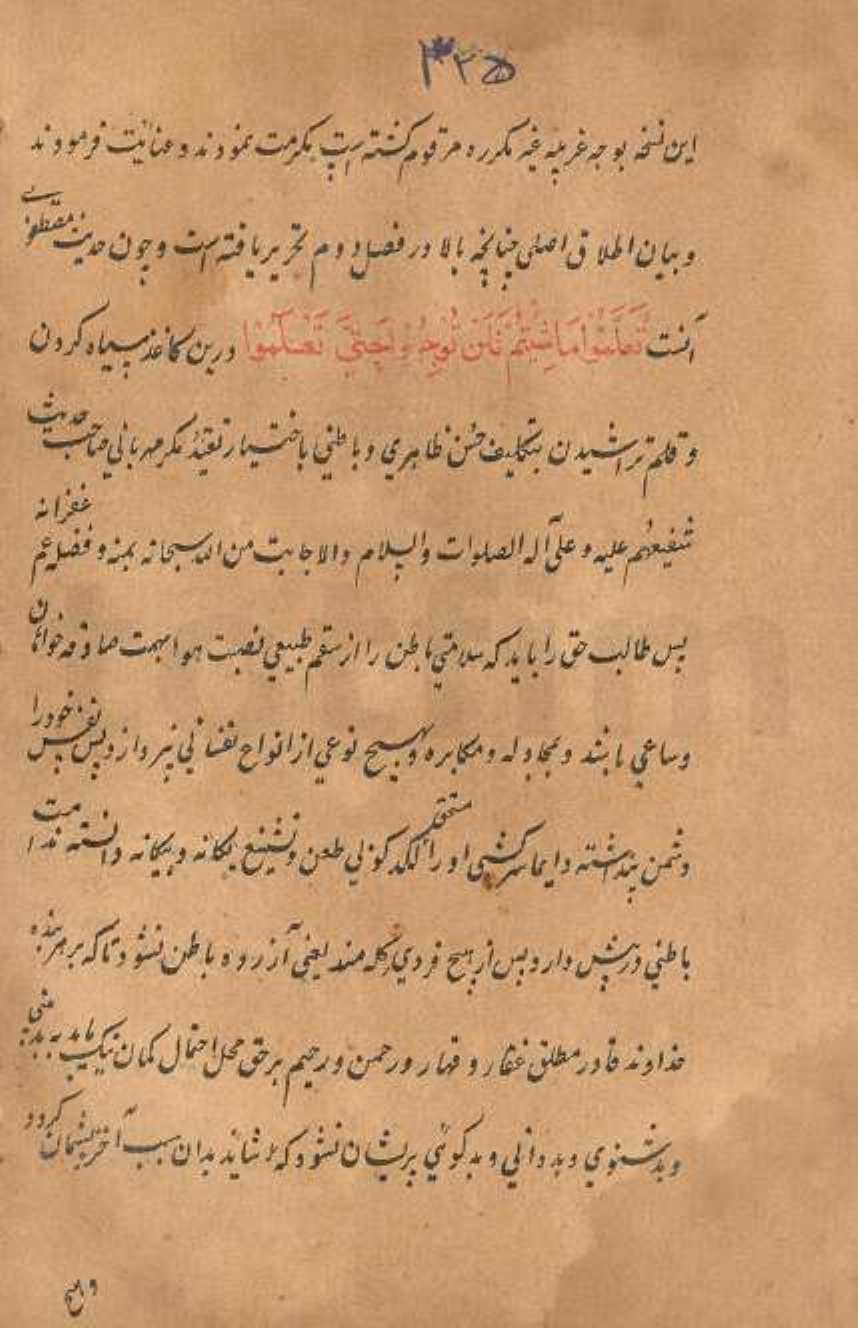 ۳۲۵
این نسخه بوجه غریبه غیر مکرره مرقوم کشته است مکرمت نمودند و عنایت فرمودند
و بیان اطلاق اصلی چنانچه بالا در فصل دوم تحریر یافته است و چون حدیث مصطفوی
آنست تَعَلَّمُوا مَا شِئْتُمْ فَلَن تُوجَرُوا حَتَّى تَعْمَلُوا درین کاغذ سیاه کردن
و قلم تراشیدن بتکلیف حسن ظاهری و باطنی باختیار تقید مکر مهربانی صاحب حدیث
شفیعهم علیه و علی آله الصلوات والسلام والاجابت من الله سبحانه بمنه و فضله عم غفرانه
پس طالب حق را باید که سلامتی باطن را از سقم طبیعی هوا بهمت صادقه خواهان
وساعی باشد و بمجادله و مکابره بهیچ نوعی از انواح نفسانی نپردازد پس نفس خود را
دشمن پنداشته دایما سرکشی او را لکد کوبی طعن و تشنیع یکانه و بیکانه دانسته ندامت
باطنی درپیش دارد پس از هیچ فردی کله مند یعنی آزرده باطن نشود تا که بر هر بنده
خداوند قادر مطلق غفار و قهار و رحمن و رحیم برحق محل احتمال کمان نیک باید به بدبینی
و بدشنوی و بددانی و بدکوئی پریشان نشود که شاید بدان سبب آخر پشیمان کردد
و هیچ